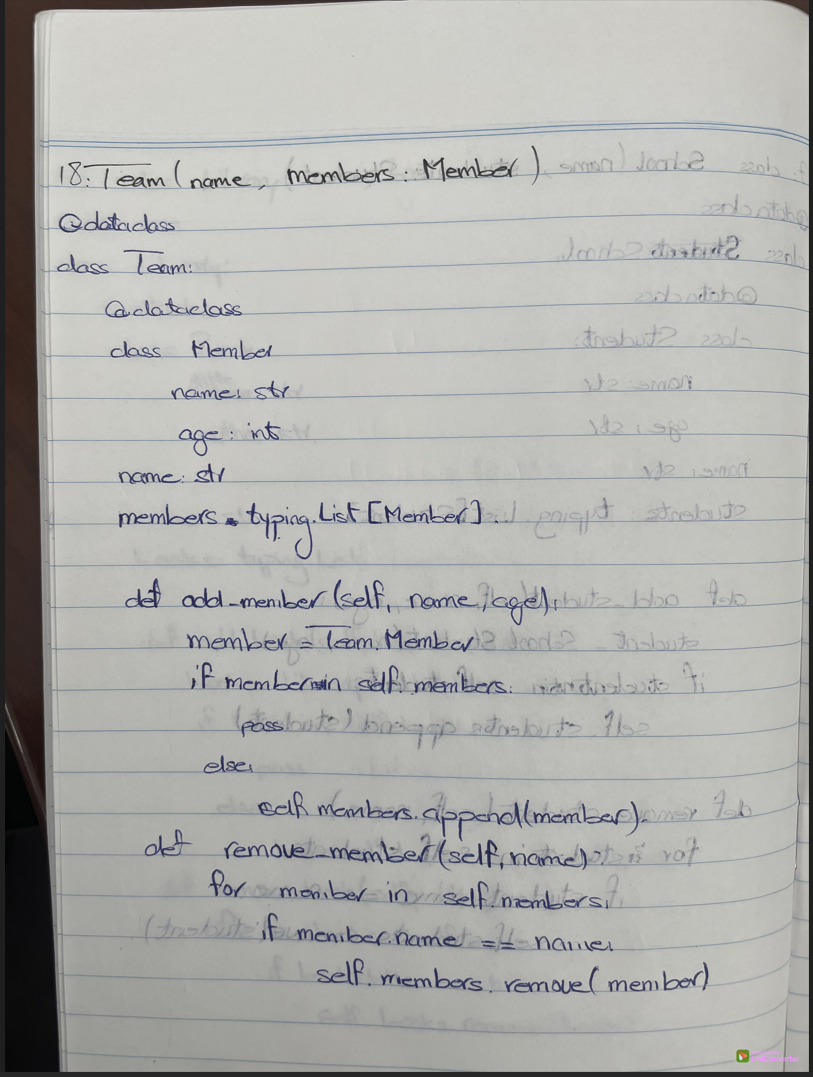 18. Team (name, members: Member)
@dataclass
class Team:
@dataclass
class Member
name: str
age: int
name: str
members: typing.List [Member].
def add_member (self, name, age):
member = Team.Member
if member in self.members:
pass
else:
self.members.append(member).
def remove_member (self, name):
for member in self.members:
if member.name == name:
self.members.remove(member)